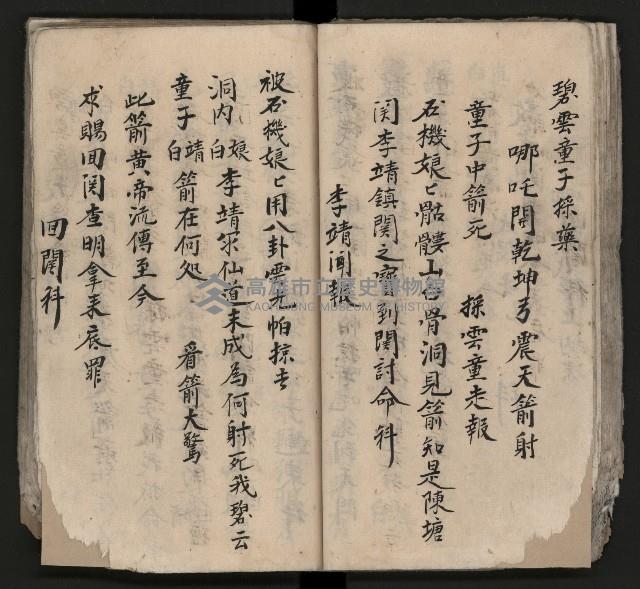 碧雲童子採藥
哪吒開乾坤弓震天箭射
童子中箭死　採雲童走報
石機娘〻骷髏山白骨洞見箭知是陳塘
関李靖鎮関之寶到関討命科
李靖聞報
被石機娘〻用八卦雲光帕掠去
洞内娘白李靖求仙道未成為何射死我碧云
童子靖白箭在何処　看箭大驚
此箭黄帝流傳至今
求賜囬関查明拿来底罪
囬関科
高雄市立歷史博物館
KAOHSIUNG MUSEUM OF HISTORY